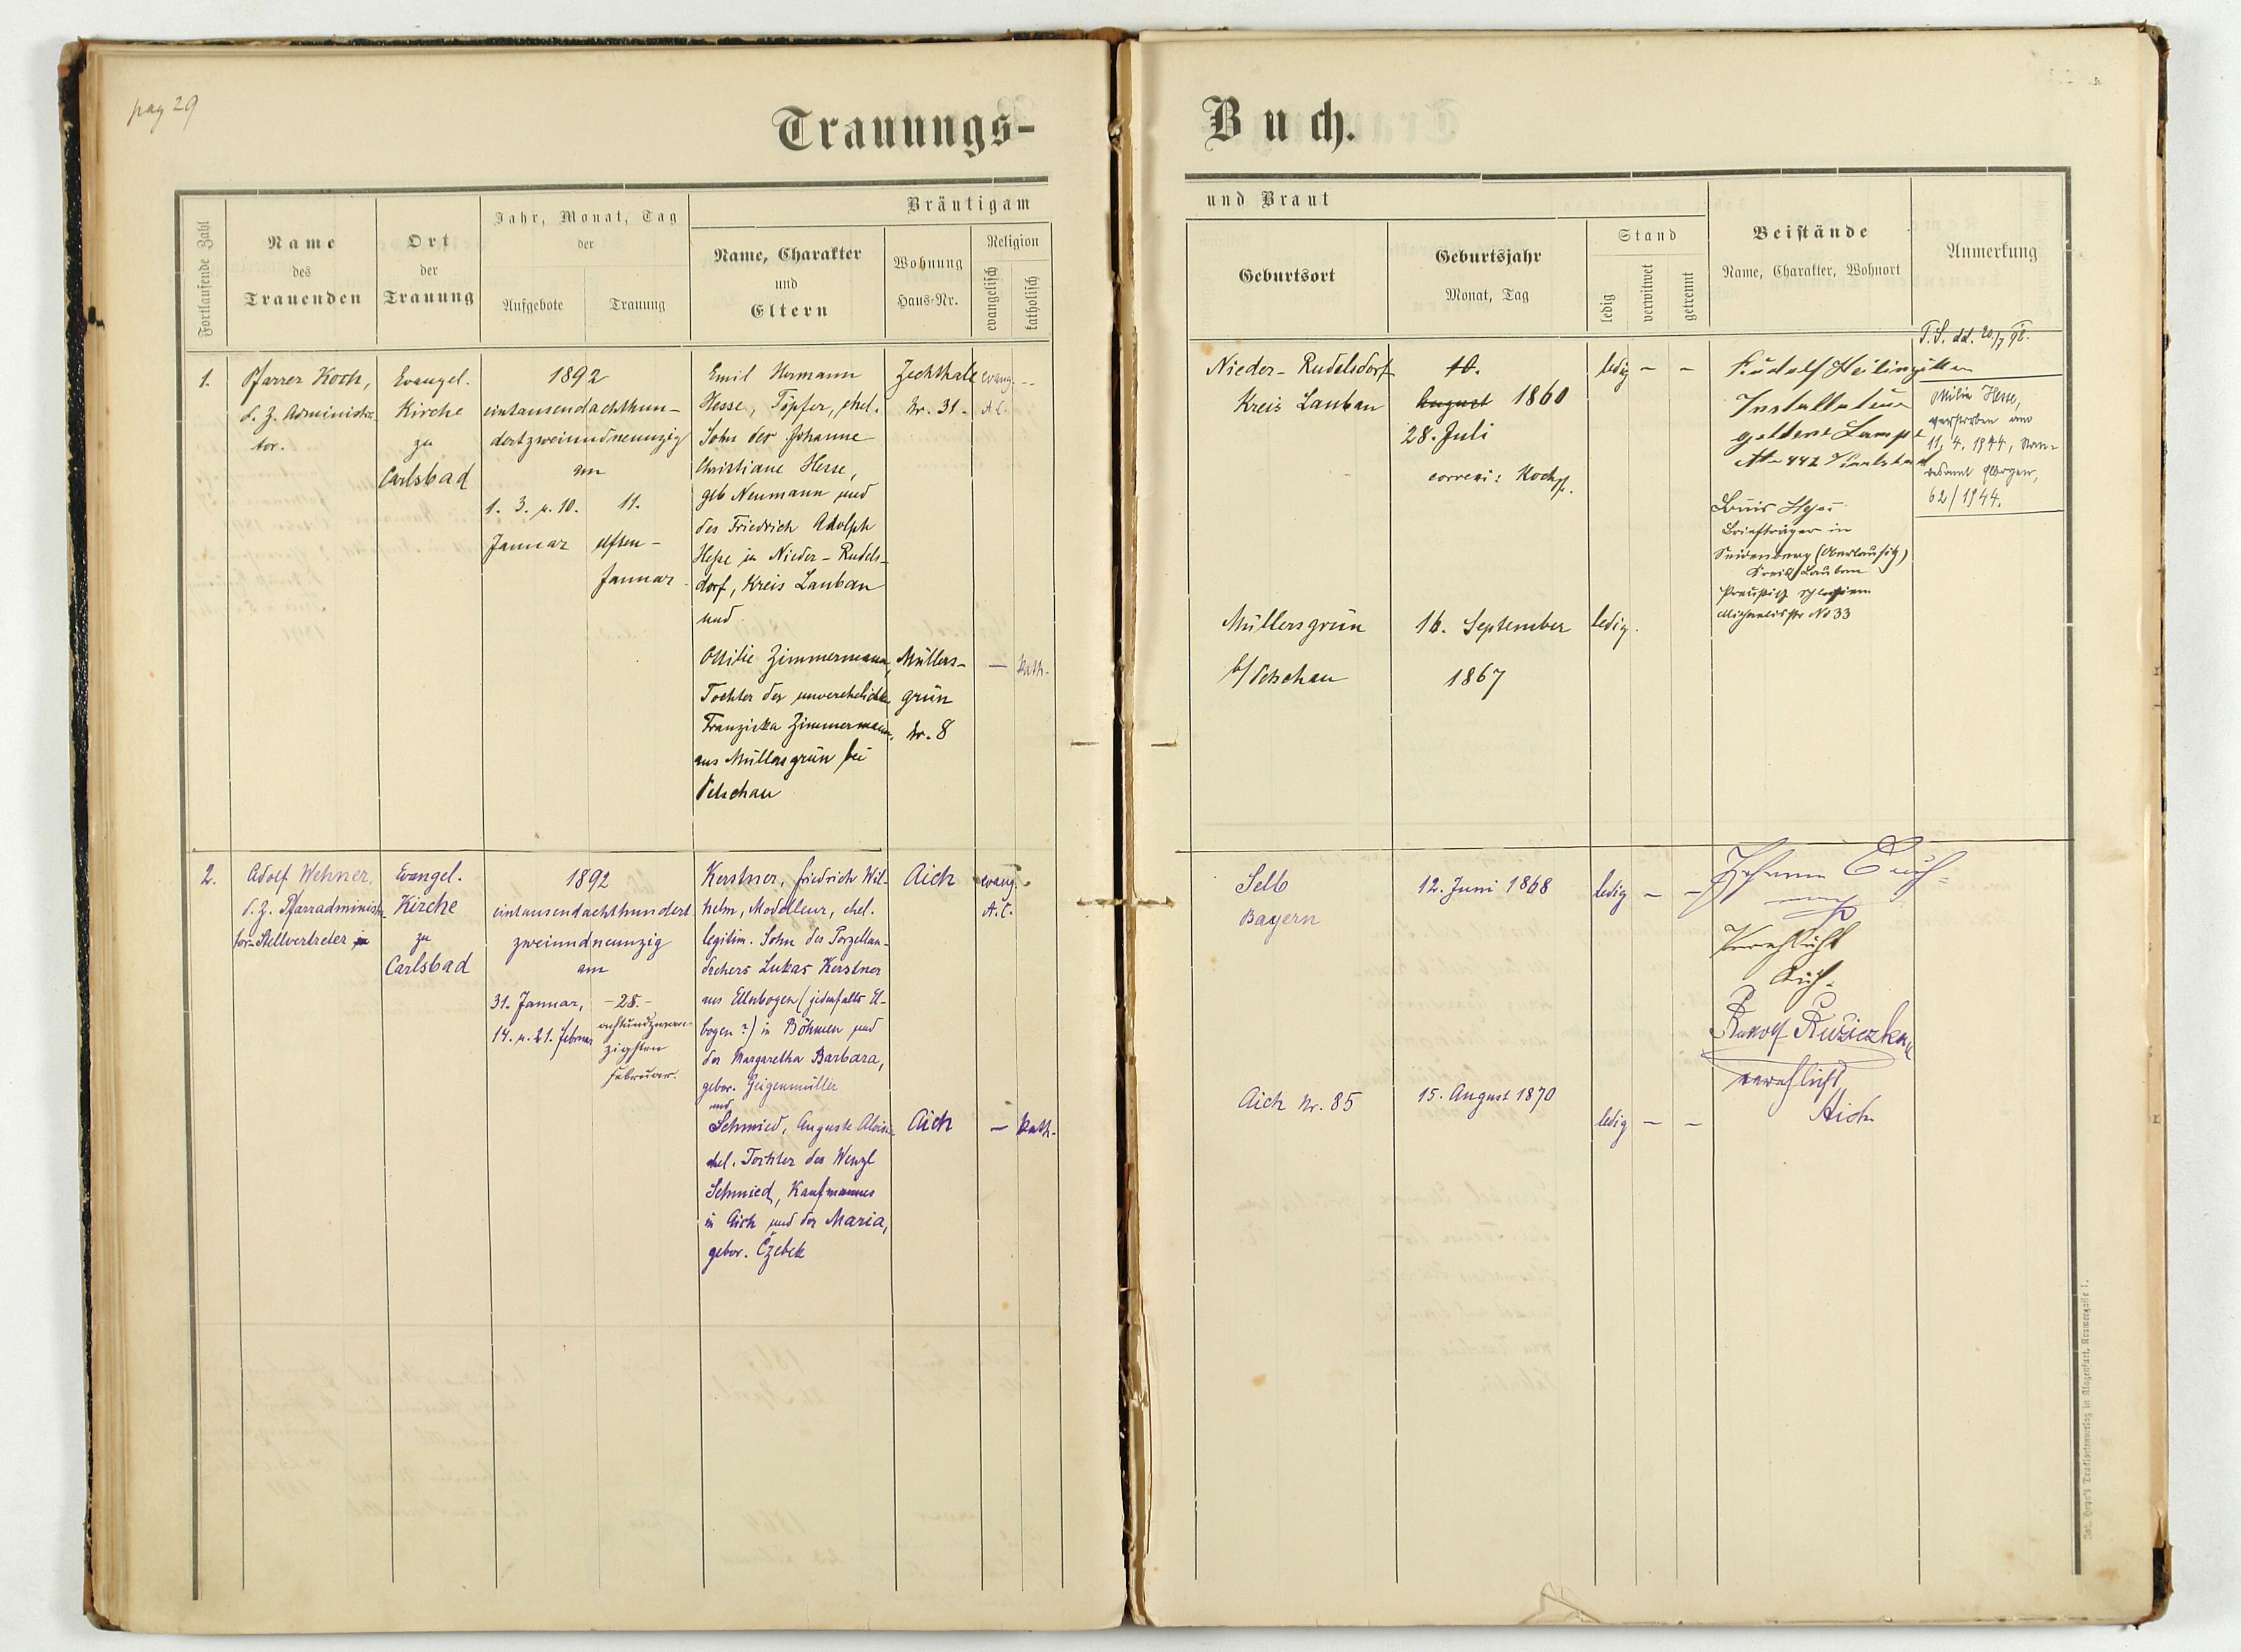 pag 29
Trauungs-
Fortlaufende Zahl
Name
des
Trauenden
Ort
der
Trauung
Jahr, Monat, Tag
der
Aufgebote
Trauung
Bräutigam
Name, Charakter
und
Eltern
Wohnung
Haus-Nr.
Religion
evangelisch
katholisch
1.
Pfarrer Koch,
d. Z. Administra-
tor.
Evangel.
Kirche
zu
Carlsbad
1892
eintausendachthun-
dertzweiundneunzig
am
1. 3. u. 10.
Januar
11.
elften -
Januar
Emil Hermann
Hesse, Töpfer, ehel.
Sohn der Johanne
Christiane Hesse,
geb Neumann und
des Friedrich Adolph
Hesse in Nieder-Rudels-
dorf, Kreis Lauban
und
Ottilie Zimmermann,
Tochter der unverehelichten
Franziska Zimmermann,
aus Müllersgrün bei
Petschau
Zechthal
Nr. 31.
Müllers-
grün
Nr. 8
evang. --
A.C.
— kath.
2.
Adolf Wehner,
d. Z. Pfarradministra-
tor-Stellvertreter
Evangel.
Kirche
zu
Carlsbad
1892
eintausendachthundert
zweiundneunzig
am
31. Januar,
14. u. 21. Februar
-28.-
achtundzwan-
zigsten
Februar.
Kerstner, Friedrich Wil-
helm, Modelleur, ehel.
legitim. Sohn des Porzellan-
drehers Lukas Kerstner
aus Ellnbogen (jedenfalls El-
bogen?) in Böhmen und
der Margaretha Barbara,
gebor. Geigenmüller
und
Schmied, Auguste Aloisia
ehel. Tochter des Wenzl
Schmied, Kaufmannes
in Aich und der Maria,
gebor. Czebek
Aich
Aich
evang.
A.C.
— kath.
Buch.
und Braut
Geburtsort
Geburtsjahr
Monat, Tag
Stand
ledig
verwitwet
getrennt
Beistände
Name, Charakter, Wohnort
Anmerkung
Nieder-Rudelsdorf
Kreis Lauban
10.
August 1860
28. Juli
correxi: Koch
ledig - -
Rudolf
Installateur
goldene Lampe
Louis
Briefträger in
Seidenberg (Oberlausitz)
Kreis Lauban
No 33
T.S. dd.
Ottilie Hesse,
verstorben am
11. 4. 1944, Stan-
desamt
62/1944.
Müllersgrün
b/Petschau
16. September
1867
ledig.
Selb
Bayern
12. Juni 1868
ledig - -
Johann
Verehlicht
Aich.
Rudolf Ružiczka
verehlicht
Aich
Aich Nr. 85
15. August 1870
ledig - -